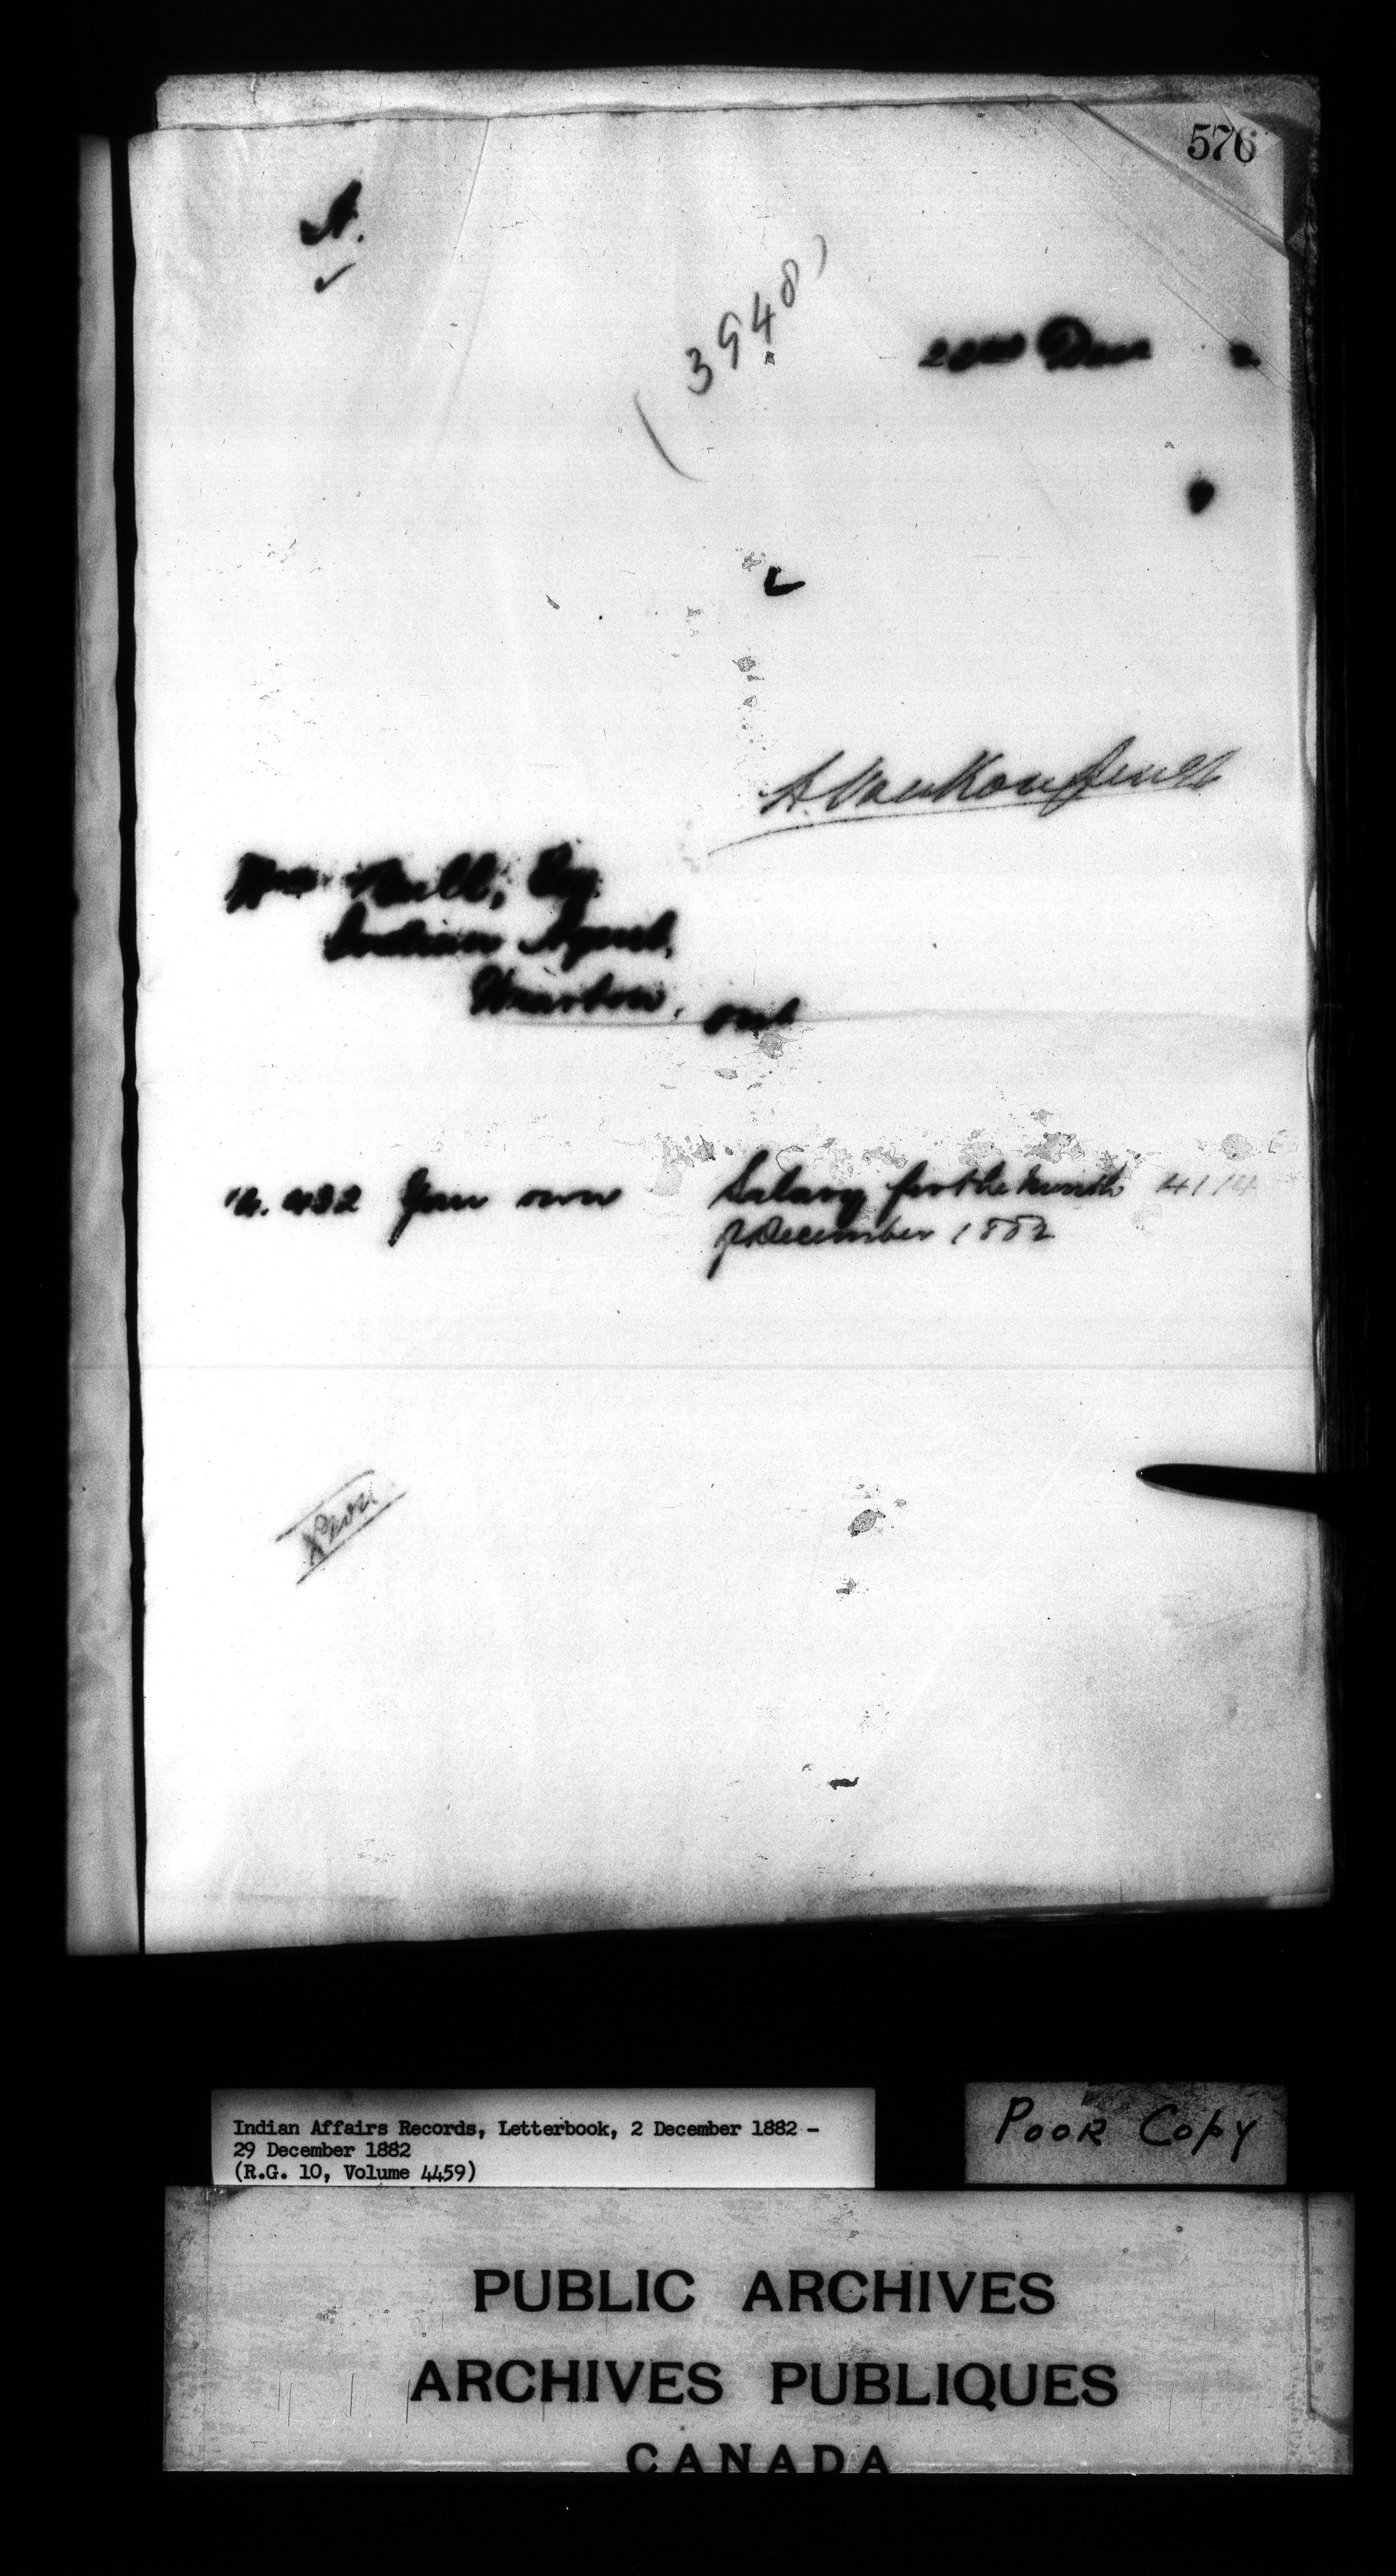 576
A.
(3948)
22nd Decr 2
A. VanKoughnet
Wm Bull, Esq
Indian Agent,
Wiarton, Ont
432 Your own Salary for the Month 41/14
of December 1882
Indian Affairs Records, Letterbook, 2 December 1882 -
29 December 1882
(R.G. 10, Volume 4459)
POOR COPY
PUBLIC ARCHIVES
ARCHIVES PUBLIQUES
CANADA